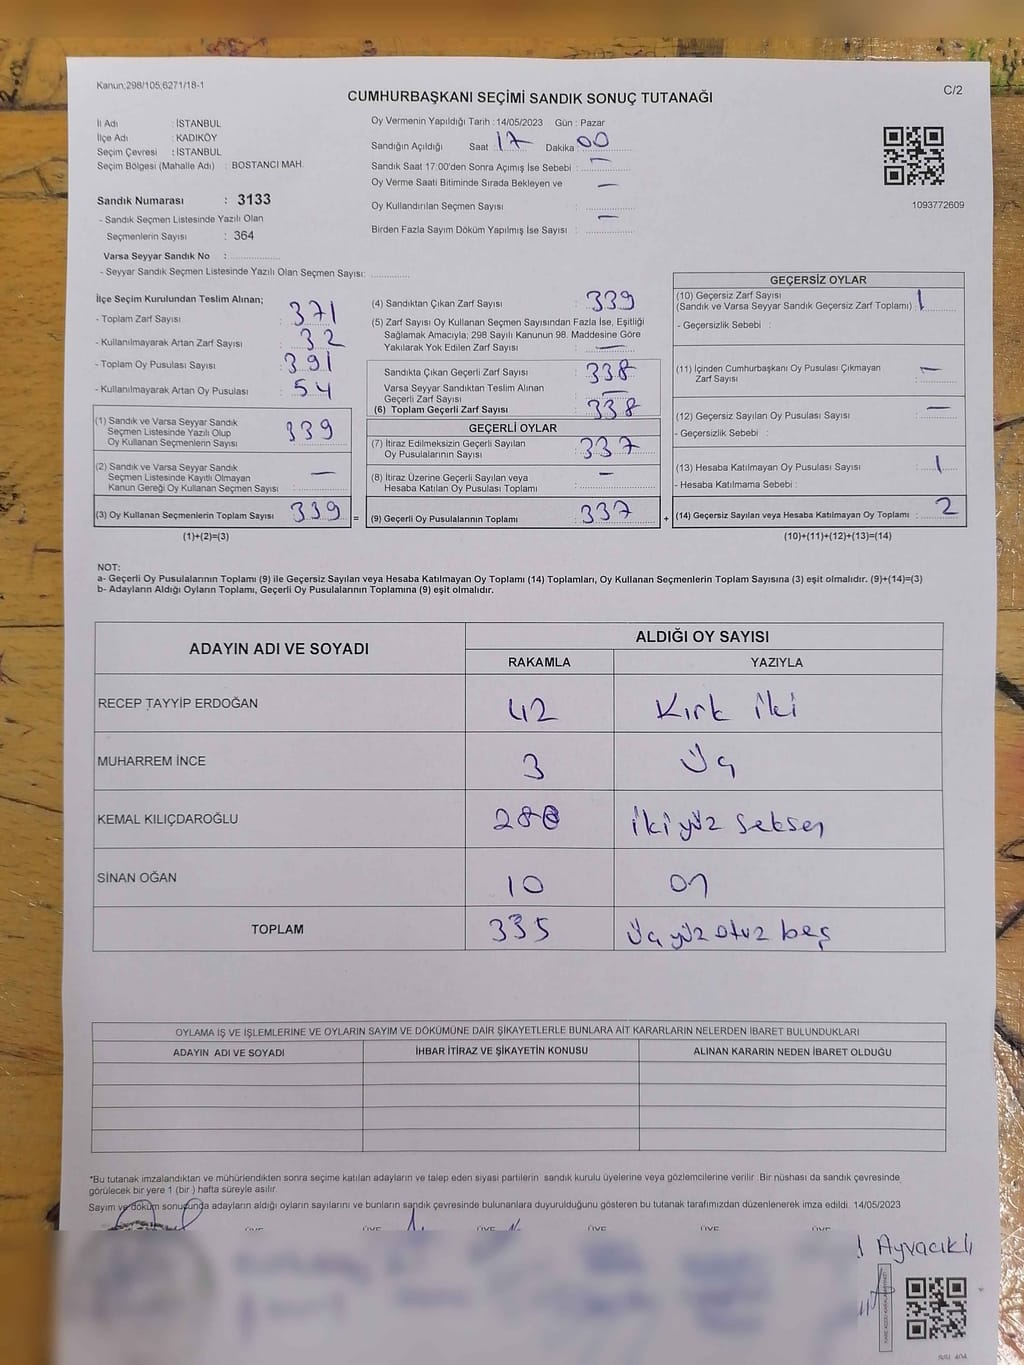 Kanun,298/105;6271/18-1
C/2
CUMHURBAŞKANI SEÇİMİ SANDIK SONUÇ TUTANAĞI
İl Adı : İSTANBUL
İlçe Adı : KADIKÖY
Seçim Çevresi : İSTANBUL
Seçim Bölgesi (Mahalle Adı) : BOSTANCI MAH.
Sandık Numarası : 3133
- Sandık Seçmen Listesinde Yazılı Olan
Seçmenlerin Sayısı : 364
Varsa Seyyar Sandık No : ................
- Seyyar Sandık Seçmen Listesinde Yazılı Olan Seçmen Sayısı: ............
Oy Vermenin Yapıldığı Tarih : 14/05/2023 Gün : Pazar
Sandığın Açıldığı Saat : 17 Dakika : 00
Sandık Saat 17:00'den Sonra Açımış İse Sebebi : —
Oy Verme Saati Bitiminde Sırada Bekleyen ve —
Oy Kullandırılan Seçmen Sayısı : —
Birden Fazla Sayım Döküm Yapılmış İse Sayısı : ............
1093772609
İlçe Seçim Kurulundan Teslim Alınan;
- Toplam Zarf Sayısı : 371
- Kullanılmayarak Artan Zarf Sayısı : 32
- Toplam Oy Pusulası Sayısı : 391
- Kullanılmayarak Artan Oy Pusulası : 54
(1) Sandık ve Varsa Seyyar Sandık
Seçmen Listesinde Yazılı Olup
Oy Kullanan Seçmenlerin Sayısı : 339
(2) Sandık ve Varsa Seyyar Sandık
Seçmen Listesinde Kayıtlı Olmayan
Kanun Gereği Oy Kullanan Seçmen Sayısı : —
(3) Oy Kullanan Seçmenlerin Toplam Sayısı : 339
(1)+(2)=(3)
=
(4) Sandıktan Çıkan Zarf Sayısı : 339
(5) Zarf Sayısı Oy Kullanan Seçmen Sayısından Fazla İse, Eşitliği
Sağlamak Amacıyla; 298 Sayılı Kanunun 98. Maddesine Göre
Yakılarak Yok Edilen Zarf Sayısı : —
Sandıkta Çıkan Geçerli Zarf Sayısı : 338
Varsa Seyyar Sandıktan Teslim Alınan
Geçerli Zarf Sayısı : —
(6) Toplam Geçerli Zarf Sayısı : 338
GEÇERLİ OYLAR
(7) İtiraz Edilmeksizin Geçerli Sayılan
Oy Pusulalarının Sayısı : 337
(8) İtiraz Üzerine Geçerli Sayılan veya
Hesaba Katılan Oy Pusulası Toplamı : —
(9) Geçerli Oy Pusulalarının Toplamı : 337
+
GEÇERSİZ OYLAR
(10) Geçersiz Zarf Sayısı
(Sandık ve Varsa Seyyar Sandık Geçersiz Zarf Toplamı) : 1
- Geçersizlik Sebebi :
(11) İçinden Cumhurbaşkanı Oy Pusulası Çıkmayan
Zarf Sayısı : —
(12) Geçersiz Sayılan Oy Pusulası Sayısı : —
- Geçersizlik Sebebi :
(13) Hesaba Katılmayan Oy Pusulası Sayısı : 1
- Hesaba Katılmama Sebebi :
(14) Geçersiz Sayılan veya Hesaba Katılmayan Oy Toplamı : 2
(10)+(11)+(12)+(13)=(14)
NOT:
a- Geçerli Oy Pusulalarının Toplamı (9) ile Geçersiz Sayılan veya Hesaba Katılmayan Oy Toplamı (14) Toplamları, Oy Kullanan Seçmenlerin Toplam Sayısına (3) eşit olmalıdır. (9)+(14)=(3)
b- Adayların Aldığı Oyların Toplamı, Geçerli Oy Pusulalarının Toplamına (9) eşit olmalıdır.
ADAYIN ADI VE SOYADI
ALDIĞI OY SAYISI
RAKAMLA YAZIYLA
RECEP TAYYİP ERDOĞAN 42 Kırk iki
MUHARREM İNCE 3 Üç
KEMAL KILIÇDAROĞLU İkiyüz seksen
SİNAN OĞAN 10 on
TOPLAM 335 Üçyüz otuz beş
OYLAMA İŞ VE İŞLEMLERİNE VE OYLARIN SAYIM VE DÖKÜMÜNE DAİR ŞİKAYETLERLE BUNLARA AİT KARARLARIN NELERDEN İBARET BULUNDUKLARI
ADAYIN ADI VE SOYADI İHBAR İTİRAZ VE ŞİKAYETİN KONUSU ALINAN KARARIN NEDEN İBARET OLDUĞU
*Bu tutanak imzalandıktan ve mühürlendikten sonra seçime katılan adayların ve talep eden siyasi partilerin sandık kurulu üyelerine veya gözlemcilerine verilir. Bir nüshası da sandık çevresinde
görülecek bir yere 1 (bir ) hafta süreyle asılır.
Sayım ve döküm sonucunda adayların aldığı oyların sayılarını ve bunların sandık çevresinde bulunanlara duyurulduğunu gösteren bu tutanak tarafımızdan düzenlenerek imza edildi. 14/05/2023
ÜYE ÜYE ÜYE ÜYE ÜYE ÜYE
Ayvacıklı